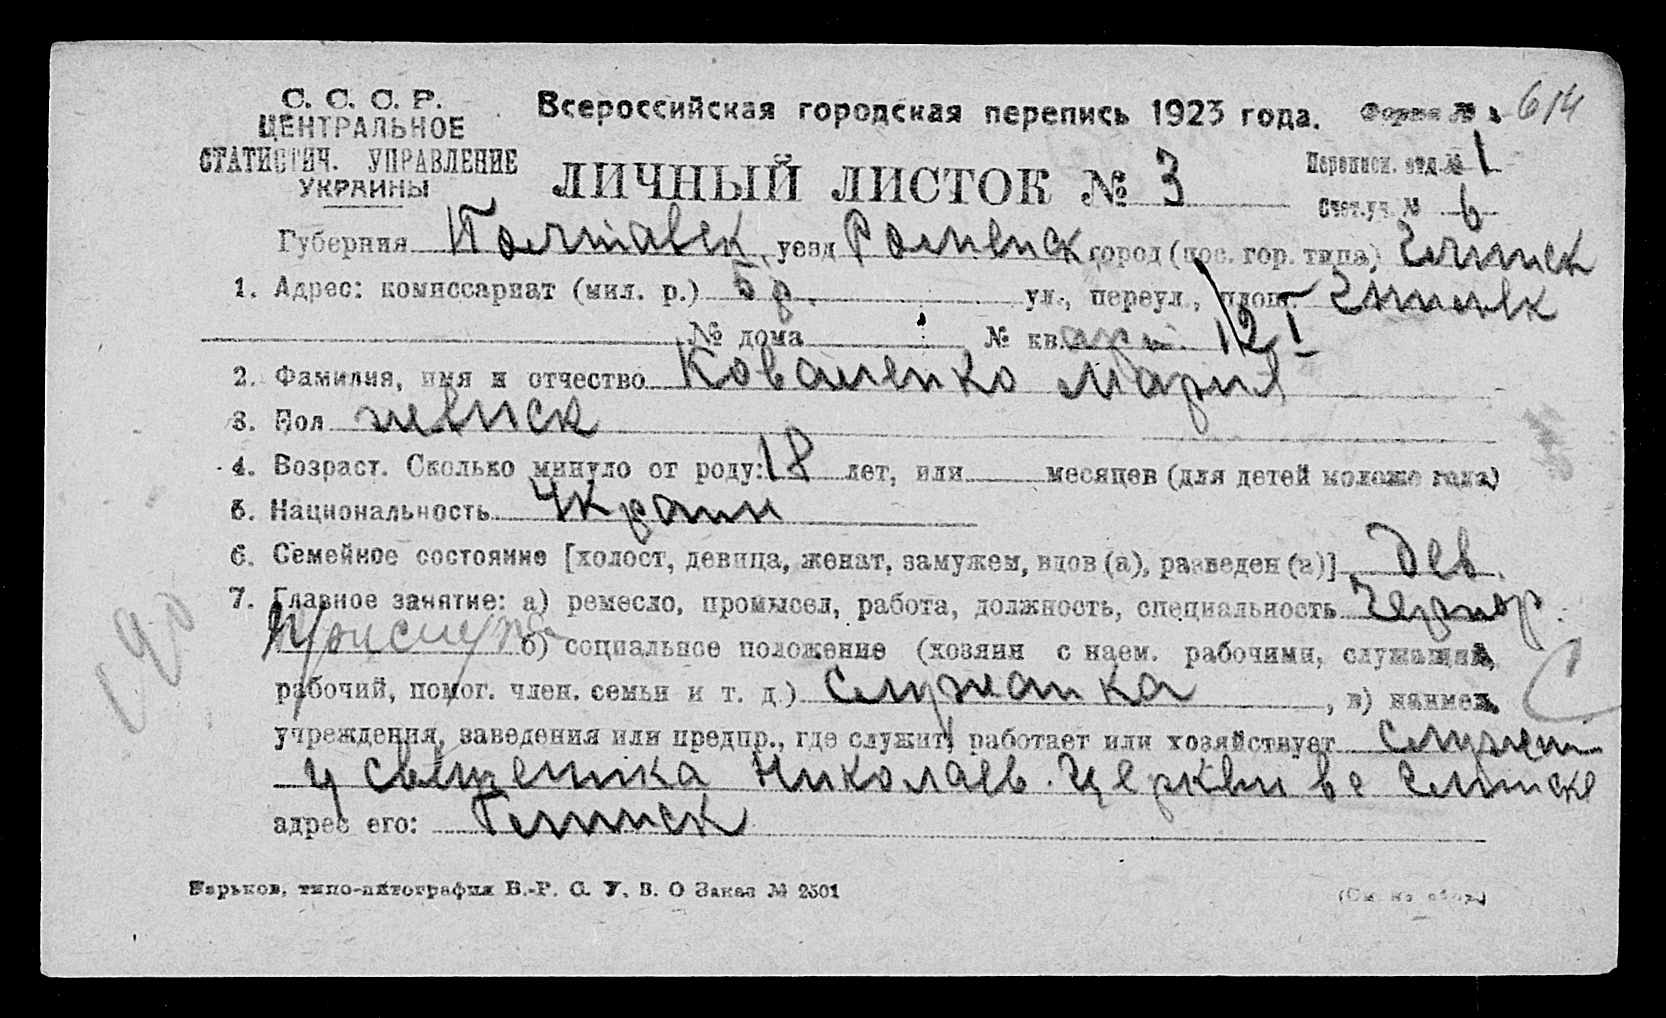 С. С. С. Р.
ЦЕНТРАЛЬНОЕ
СТАТИСТИЧ. УПРАВЛЕНИЕ
УКРАИНЫ
Всероссийская городская перепись 1923 года.
Форма № 614
ЛИЧНЫЙ ЛИСТОК № 3
Переписн. отд. № 1
Счет. уч. № 6
Губерния Полтавск, уезд Роменск город (пос. гор. типа) Глинск
1. Адрес: комиссариат (мил. р.) 5 р. ул., переул., площ. Глинск
№ дома № кв. 12
2. Фамилия, имя и отчество Коваленко Мария
3. Пол женск
4. Возраст. Сколько минуло от роду: 18 лет, или месяцев (для детей моложе года)
5. Национальность Украин
6. Семейное состояние [холост, девица, женат, замужем, вдов (а), разведен (а)] Дев.
7. Главное занятие: а) ремесло, промысел, работа, должность, специальность
Прислуга б) социальное положение (хозяин с наем. рабочими, служащий,
рабочий, помог. член. семьи и т. д.) Служанка, в) наимен.
учреждения, заведения или предпр., где служит, работает или хозяйствует служит
у священика Николаев. Церкви в Глинске
адрес его: Глинск
Харьков, типо-литография В.-Р. С. У. В. О Заказ № 2501
(См. на обор.)